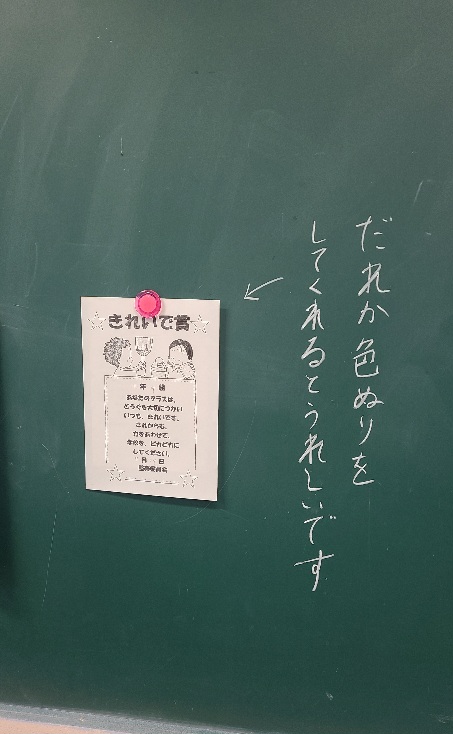 だれか色ぬりを
してくれるとうれしいです
きれいで賞
年 組
あなたのクラスは、
どうぐを大切につかい
いつも、きれいです。
これからも、
力をあわせて、
学校を、ピカピカに
してください。
月 日